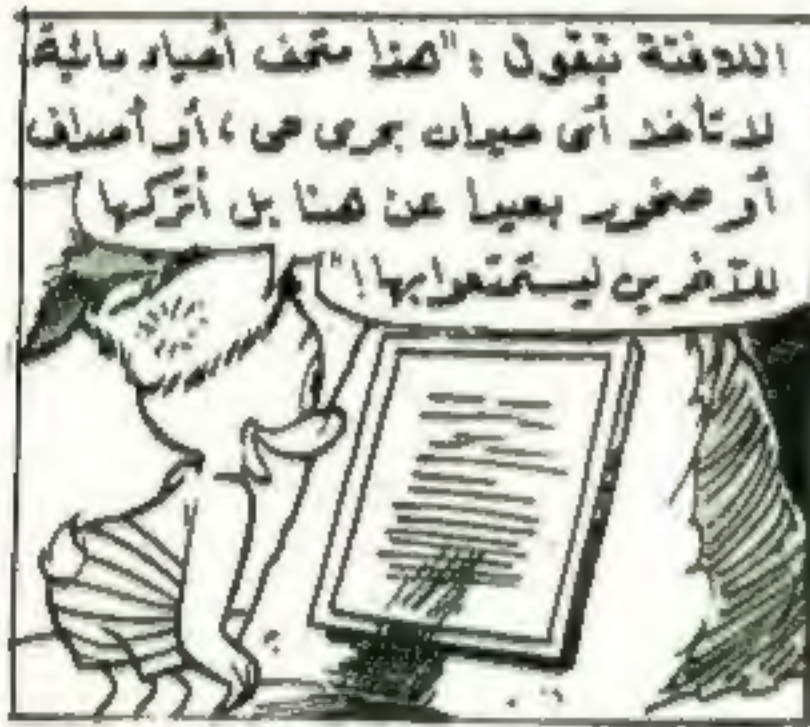 اللافتة تقول : "هنا متحف أحياء مائية
لا تأخذ أى حيوان بحرى حى ، أو أصداف
أو صخور بعيدا عن هنا بل أتركها
للآخرين ليستمتعوا بها !"